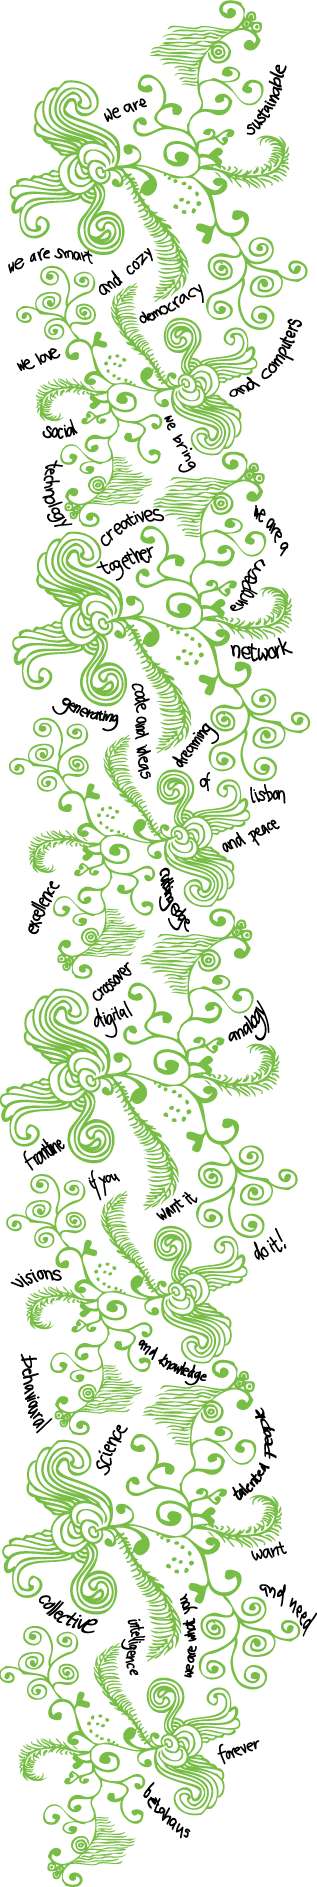 we are
sustainable
we are smart
and cozy
democracy
we love
and computers
social
we bring
technology
creatives
together
we are a
european
network
generating
code and ideas
dreaming
of
lisbon
and peace
excellence
cutting edge
crossover
digital
analogy
frontline
if you
want it
do it!
visions
and knowledge
behavioural
science
talented people
want
and need
collective
intelligence
we are what you
forever
betahaus